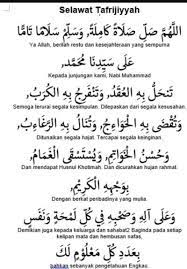 Selawat Tafrijiyyah
اللَّهُمَّ صَلِّ صَلَاةً كَامِلَةً, وَسَلِّمْ سَلَامًا تَامًّا
Ya Allah, berilah restu dan kesejahteraan yang sempurna
عَلَى سَيِّدِنَا مُحَمَّدٍ,
Kepada junjungan kami, Nabi Muhammad
تَنْحَلُّ بِهِ الْعُقَدُ, وَتَنْفَرِجُ بِهِ الْكُرَبُ,
Semoga terurai segala kesimpulan. Dilepaskan dari segala kesusahan.
وَتُقْضَى بِهِ الْحَوَائِجُ, وَتُنَالُ بِهِ الرَّغَائِبُ,
Ditunaikan segala hajat. Tercapai segala keinginan.
وَحُسْنُ الْخَوَاتِمِ, وَيُسْتَسْقَى الْغَمَامُ,
Dan mendapat Husnul Khotimah. Dan dicurahkan hujan rahmat.
بِوَجْهِهِ الْكَرِيْمِ,
Dengan berkat peribadinya yang mulia
وَعَلَى آلِهِ وَصَحْبِهِ فِيْ كُلِّ لَمْحَةٍ وَنَفَسٍ
Demikian juga kepada keluarga dan sahabat2 Baginda pada setiap
kelipan mata dan hembusan nafas,
بِعَدَدِ كُلِّ مَعْلُوْمٍ لَكَ
bahkan sebanyak pengetahuan Engkau.